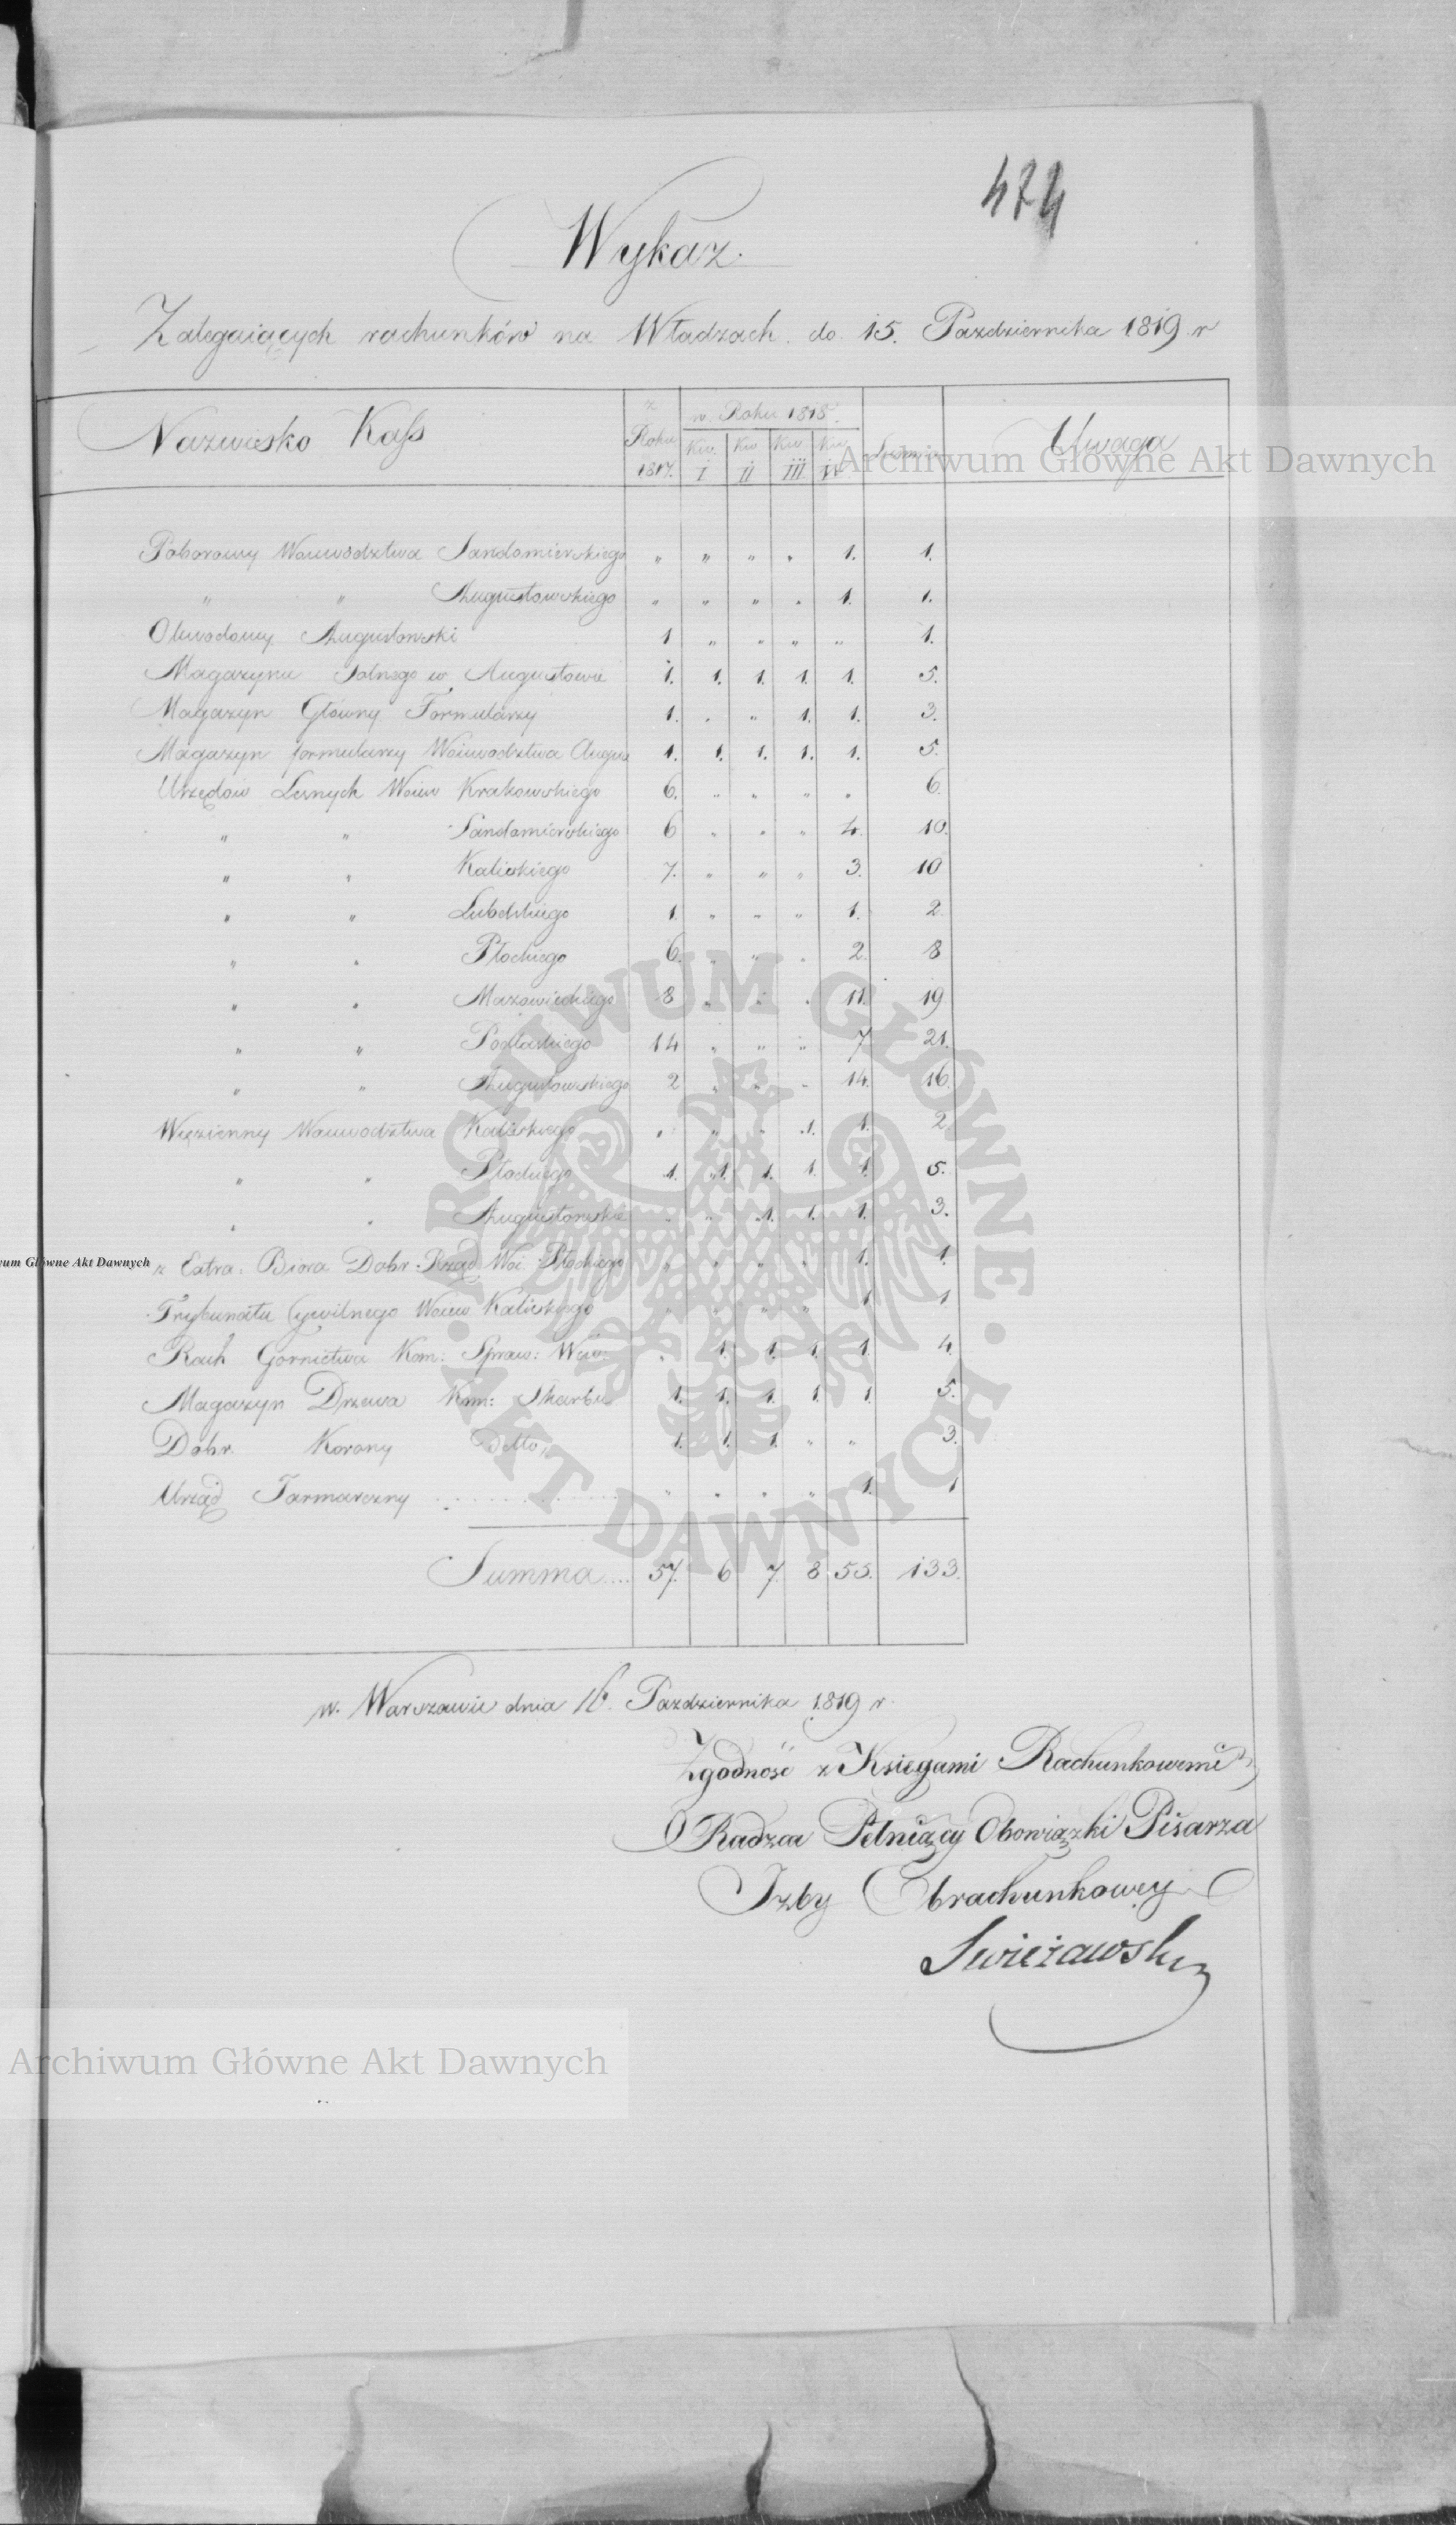 474
Wykaz.
Zalegaiących rachunków na Władzach do 15. Pazdziernika 1819 r
Nazwisko Kass z Roku 1817. w Roku 1818. Kw. I Kw II Kw III Kw IV Summa Uwaga
Poborowy Woiewodztwa Sandomierskiego " " " " 1. 1.
" " Augustowskiego " " " " 1. 1.
Obwodowy Augustowski 1 " " " " 1.
Magazynu Solnego w Augustowie 1. 1. 1. 1. 1. 5.
Magazyn Główny Formularzy 1. " " 1. 1. 3.
Magazyn formularzy Woiewodztwa Augus 1. 1. 1. 1. 1. 5.
Urzędów Lesnych Woiew Krakowskiego 6. " " " " 6.
" " Sandomierskiego 6 " " " 4. 10.
" " Kaliskiego 7. " " " 3. 10
" " Lubelskiego 1. " " " 1. 2
" " Płockiego 6. " " " 2. 8
" " Mazowieckiego 8 " " " 11. 19
" " Podlaskiego 14 " " " 7 21.
" " Augustowskiego 2 " " " 14. 16.
Więzienny Woiewodztwa Kaliskiego " " " 1. 1. 2
" " Płockiego 1. 1. 1. 1. 1. 5.
" " Augustowskie " " 1. 1. 1. 3.
z Extra. Biora Dobr Rząd Woi Płockiego " " " " 1. 1.
Trybunału Cywilnego Woiew Kaliskiego " " " " 1 1
Rach Gornictwa Kom: Spraw: Wew: " 1. 1. 1. 1. 4.
Magazyn Drzewa Kom: Skarbu 1. 1. 1. 1. 1. 5.
Dobr Korony Detto 1. 1. 1. " " 3.
Urząd Jarmarczny " " " " 1. 1
Summa.... 57. 6 7. 8 55. 133.
w. Warszawie dnia 16. Pazdziernika 1819 r.
Zgodność z Księgami Rachunkowemi
Radzca Pełniący Obowiązki Pisarza
Izby Obrachunkowey
Swieżawski
Archiwum Główne Akt Dawnych
um Główne Akt Dawnych
ARCHIWUM GŁÓWNE • AKT DAWNYCH •
Archiwum Główne Akt Dawnych